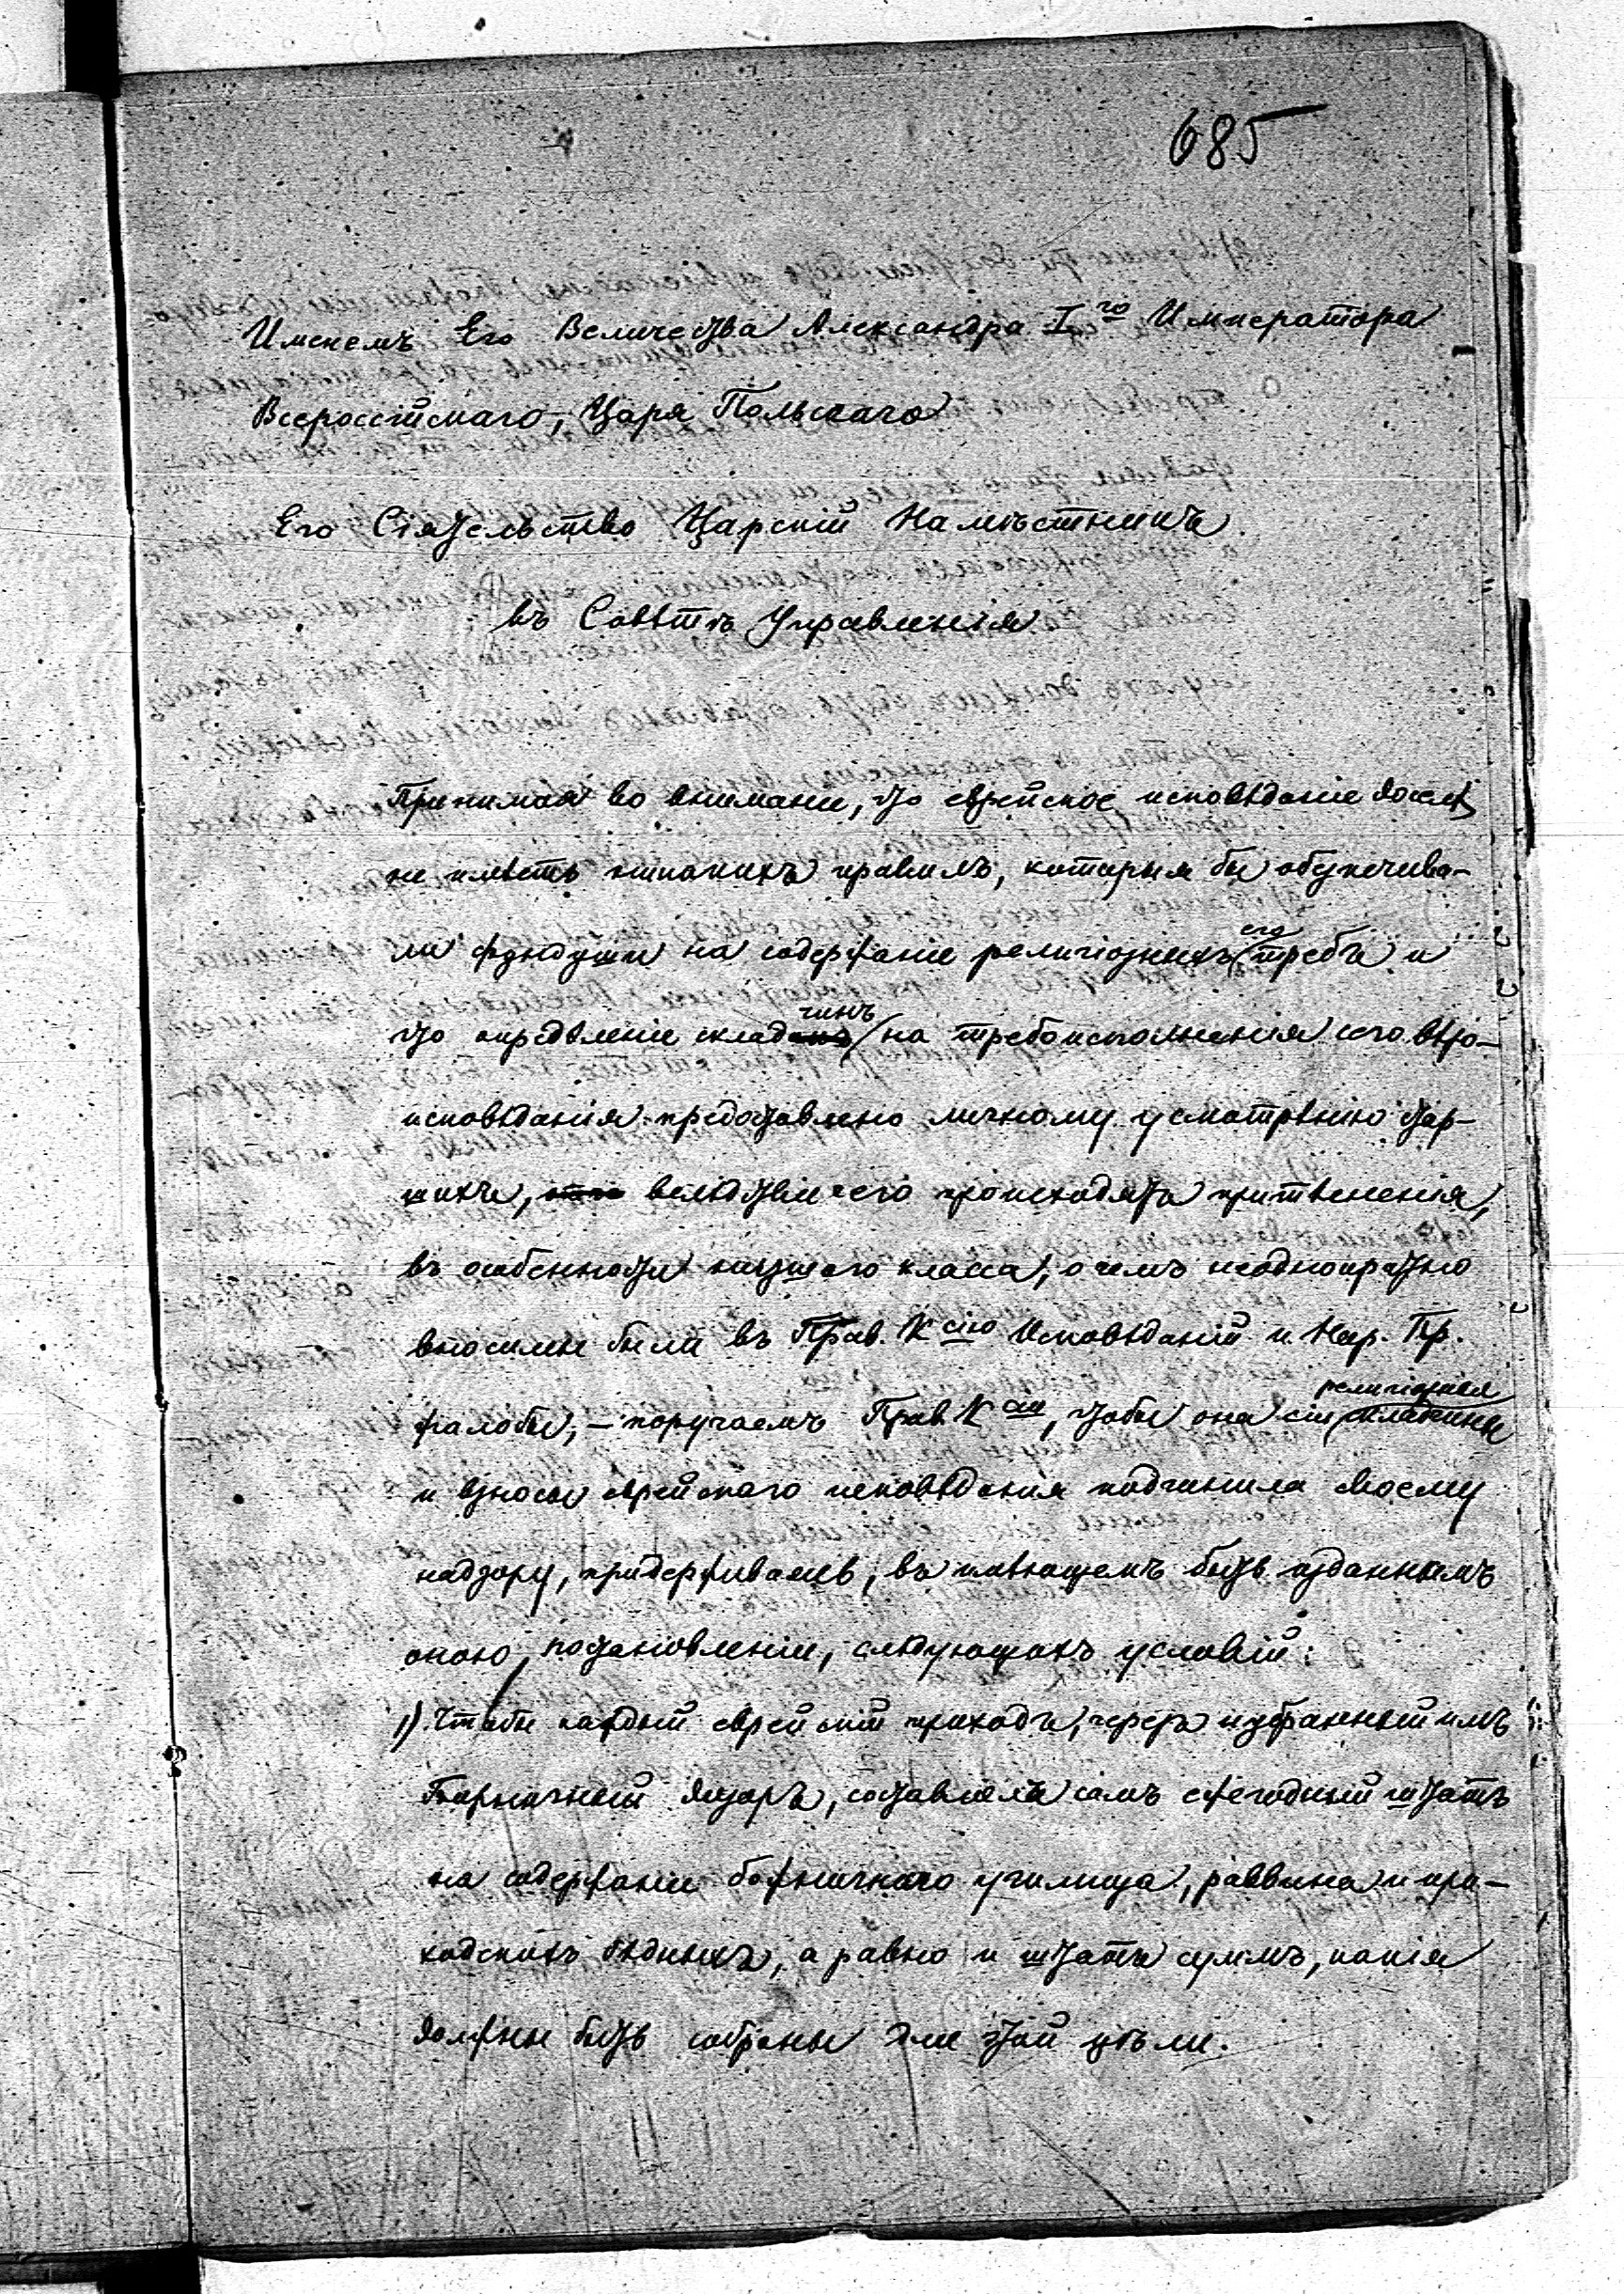 685
Именемъ Его Величества Александра I го Императора
Всероссійскаго, Царя Польскаго
Его Сіятельство Царскій Намѣстникъ
въ Совѣтѣ Управленія.
Принимая во вниманіе, что еврейское исповѣданіе доселѣ
не имѣетъ никакихъ правилъ, которыя бы обезпечива-
ли фундуши на содержаніе религіозныхъ его требъ и
что опредѣленіе складчинъ на требоисполненія сего вѣро-
исповѣданія предоставлено личному усмотрѣнію стар-
шихъ, вслѣдствіе чего происходятъ притѣсненія,
въ особенности низшаго класса, о чемъ неоднократно
вносимы были въ Прав. К сію Исповѣданій и Нар. Пр.
жалобы, – поручаемъ Прав. К сіи, чтобы она сіи религіозныя складчины
и взносы еврейскаго исповѣданія подчинила своему
надзору, придерживаясь, въ имѣющемъ быть изданнымъ
оною постановленіи, слѣдующихъ условій:
1) Чтобы каждый еврейскій приходъ, черезъ избранный имъ
Божничный Дозоръ, составлялъ самъ ежегодный штатъ
на содержаніе божничнаго училища, раввина и при-
ходскихъ бѣдныхъ, а равно и штатъ суммъ, какія
должны быть собраны для этой цѣли.